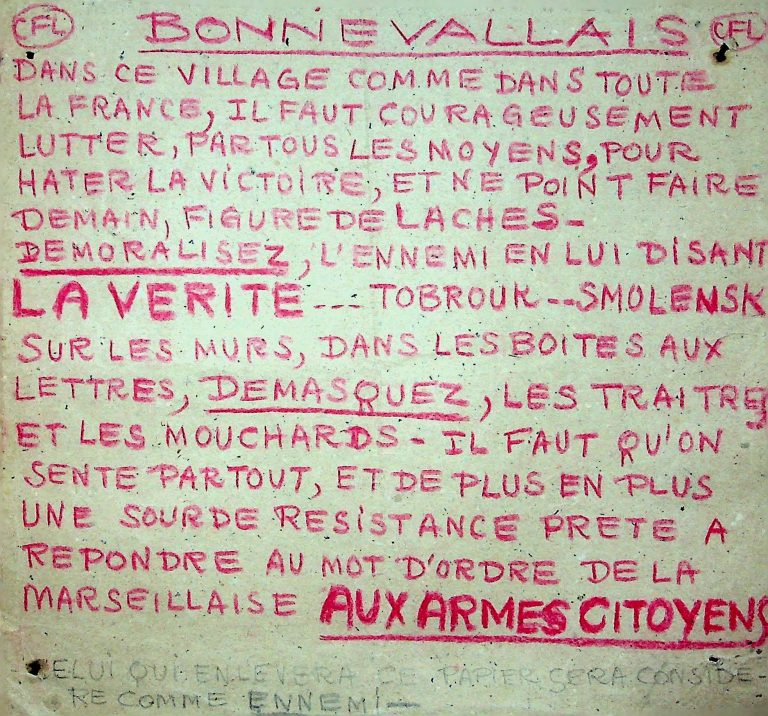 CFL BONNEVALLAIS CFL
DANS CE VILLAGE COMME DANS TOUTE
LA FRANCE, IL FAUT COURAGEUSEMENT
LUTTER, PAR TOUS LES MOYENS, POUR
HATER LA VICTOIRE, ET NE POINT FAIRE
DEMAIN, FIGURE DE LACHES -
DEMORALISEZ, L'ENNEMI EN LUI DISANT
LA VERITE --- TOBROUK -- SMOLENSK
SUR LES MURS, DANS LES BOITES AUX
LETTRES, DEMASQUEZ, LES TRAITRES
ET LES MOUCHARDS - IL FAUT QU'ON
SENTE PARTOUT, ET DE PLUS EN PLUS
UNE SOURDE RESISTANCE PRETE A
REPONDRE AU MOT D'ORDRE DE LA
MARSEILLAISE AUX ARMES CITOYENS
- CELUI QUI ENLEVERA CE PAPIER SERA CONSIDE-
RE COMME ENNEMI -